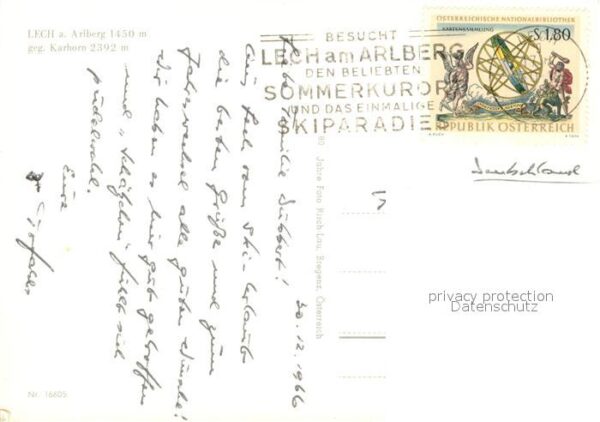 LECH a. Arlberg 1450 m
geg. Karhorn 2392 m
BESUCHT
LECH am ARLBERG
DEN BELIEBTEN
SOMMERKURORT
UND DAS EINMALIGE
SKIPARADIES
ÖSTERREICHISCHE NATIONALBIBLIOTHEK
KARTENSAMMLUNG
S 1,80
REPUBLIK ÖSTERREICH
Deutschland
30.12.1966
Liebe Familie
Aus Lech vom Ski-Urlaub
die besten Grüße und zum
Jahreswechsel alle guten Wünsche!
Wir haben es hier gut getroffen
und "Schäfchen" fühlt sich
pudelwohl.
Eure
80 Jahre Foto Risch-Lau, Bregenz, Österreich
privacy protection
Datenschutz
Nr. 16605